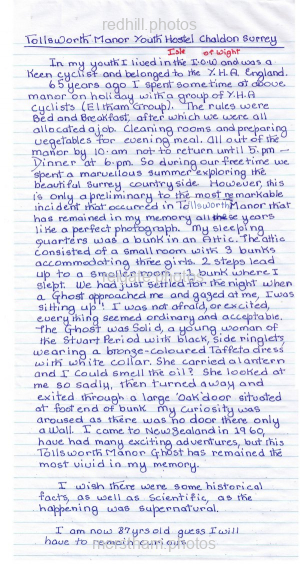 redhill.photos
Tollsworth Manor Youth Hostel Chaldon Surrey
Isle of Wight
In my youth I lived in the I.O.W and was a
Keen cyclist and belonged to the Y.H.A England.
65 years ago I spent some time at above
manor on holiday with a group of Y.H.A
cyclists (Eltham Group). The rules were
Bed and Breakfast, after which we were all
allocated a job. Cleaning rooms and preparing
vegetables for evening meal. All out of the
manor by 10.am not to return until 5.pm -
Dinner at 6.pm. So during our free time we
spent a marvellous summer exploring the
beautiful Surrey countryside. However, this
is only a preliminary to the most remarkable
incident that occurred in Tollsworth Manor that
has remained in my memory all these years
like a perfect photograph. My sleeping
quarters was a bunk in an Attic. The attic
consisted of a small room with 3 bunks
accommodating three girls. 2 steps lead
up to a smaller room + a bunk where I
slept. We had just settled for the night when
a Ghost approached me and gazed at me, I was
sitting up! I was not afraid, or excited,
everything seemed ordinary and acceptable.
The Ghost was Solid, a young woman of
the Stuart Period with black, side ringlets
wearing a bronze-coloured Taffeta dress
with white collar. She carried a lantern
and I could smell the oil? She looked at
me so sadly, then turned away and
exited through a large 'oak' door situated
at foot end of bunk my curiosity was
aroused as there was no door there only
a wall. I came to New Zealand in 1960,
have had many exciting adventures, but this
Tollsworth Manor Ghost has remained the
most vivid in my memory.
I wish there were some historical
facts, as well as Scientific, as the
happening was supernatural.
I am now 87yrs old guess I will
have to remain curious
merstham.photos